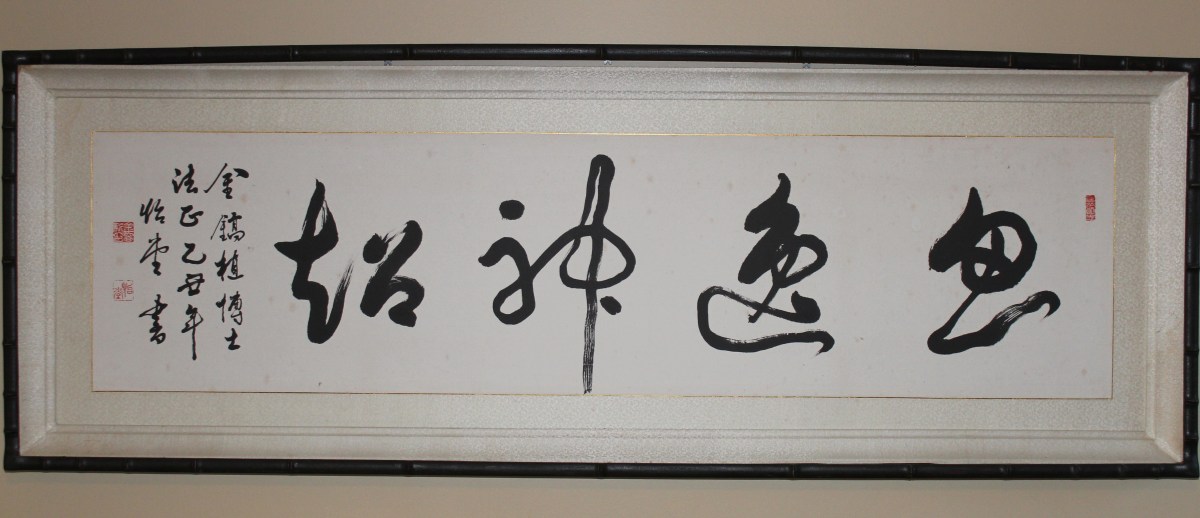 思逸神超
金鎬植博士
法正乙丑年
怡堂書